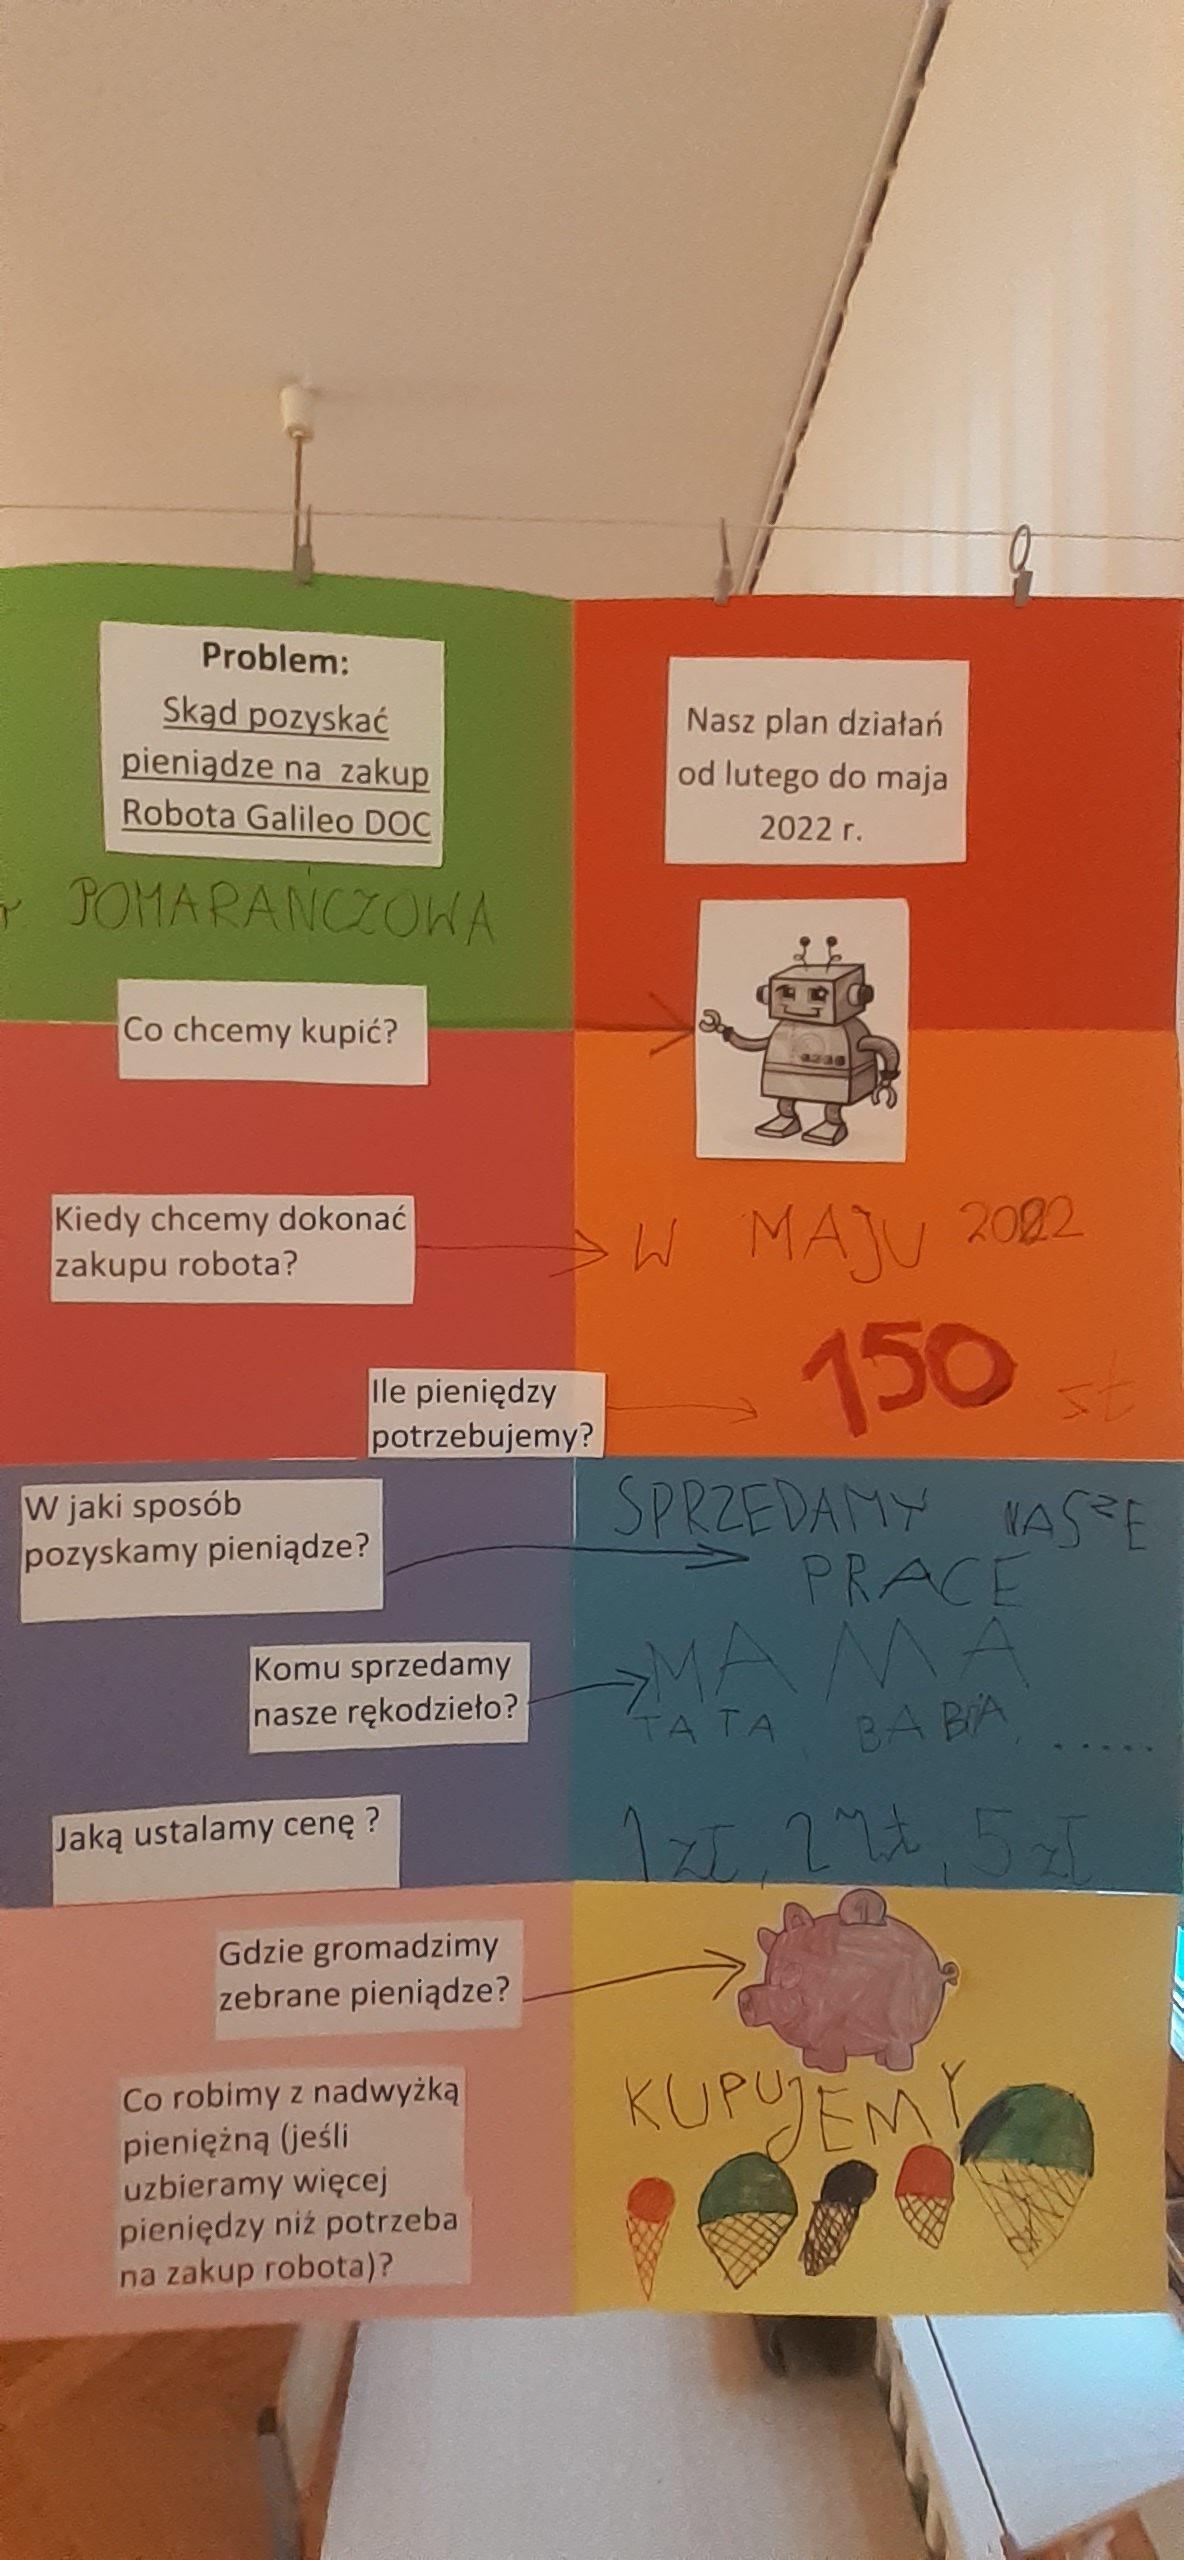 Problem:
Skąd pozyskać
pieniądze na zakup
Robota Galileo DOC
POMARAŃCZOWA
Nasz plan działań
od lutego do maja
2022 r.
Co chcemy kupić?
Kiedy chcemy dokonać
zakupu robota?
W MAJU 2022
Ile pieniędzy
potrzebujemy?
150
W jaki sposób
pozyskamy pieniądze?
SPRZEDAMY NASZE
PRACE
Komu sprzedamy
nasze rękodzieło?
MAMA
TATA, BABIA, .....
Jaką ustalamy cenę ?
1 zł, 2 zł, 5 zł
Gdzie gromadzimy
zebrane pieniądze?
1
Co robimy z nadwyżką
pieniężną (jeśli
uzbieramy więcej
pieniędzy niż potrzeba
na zakup robota)?
KUPUJEMY